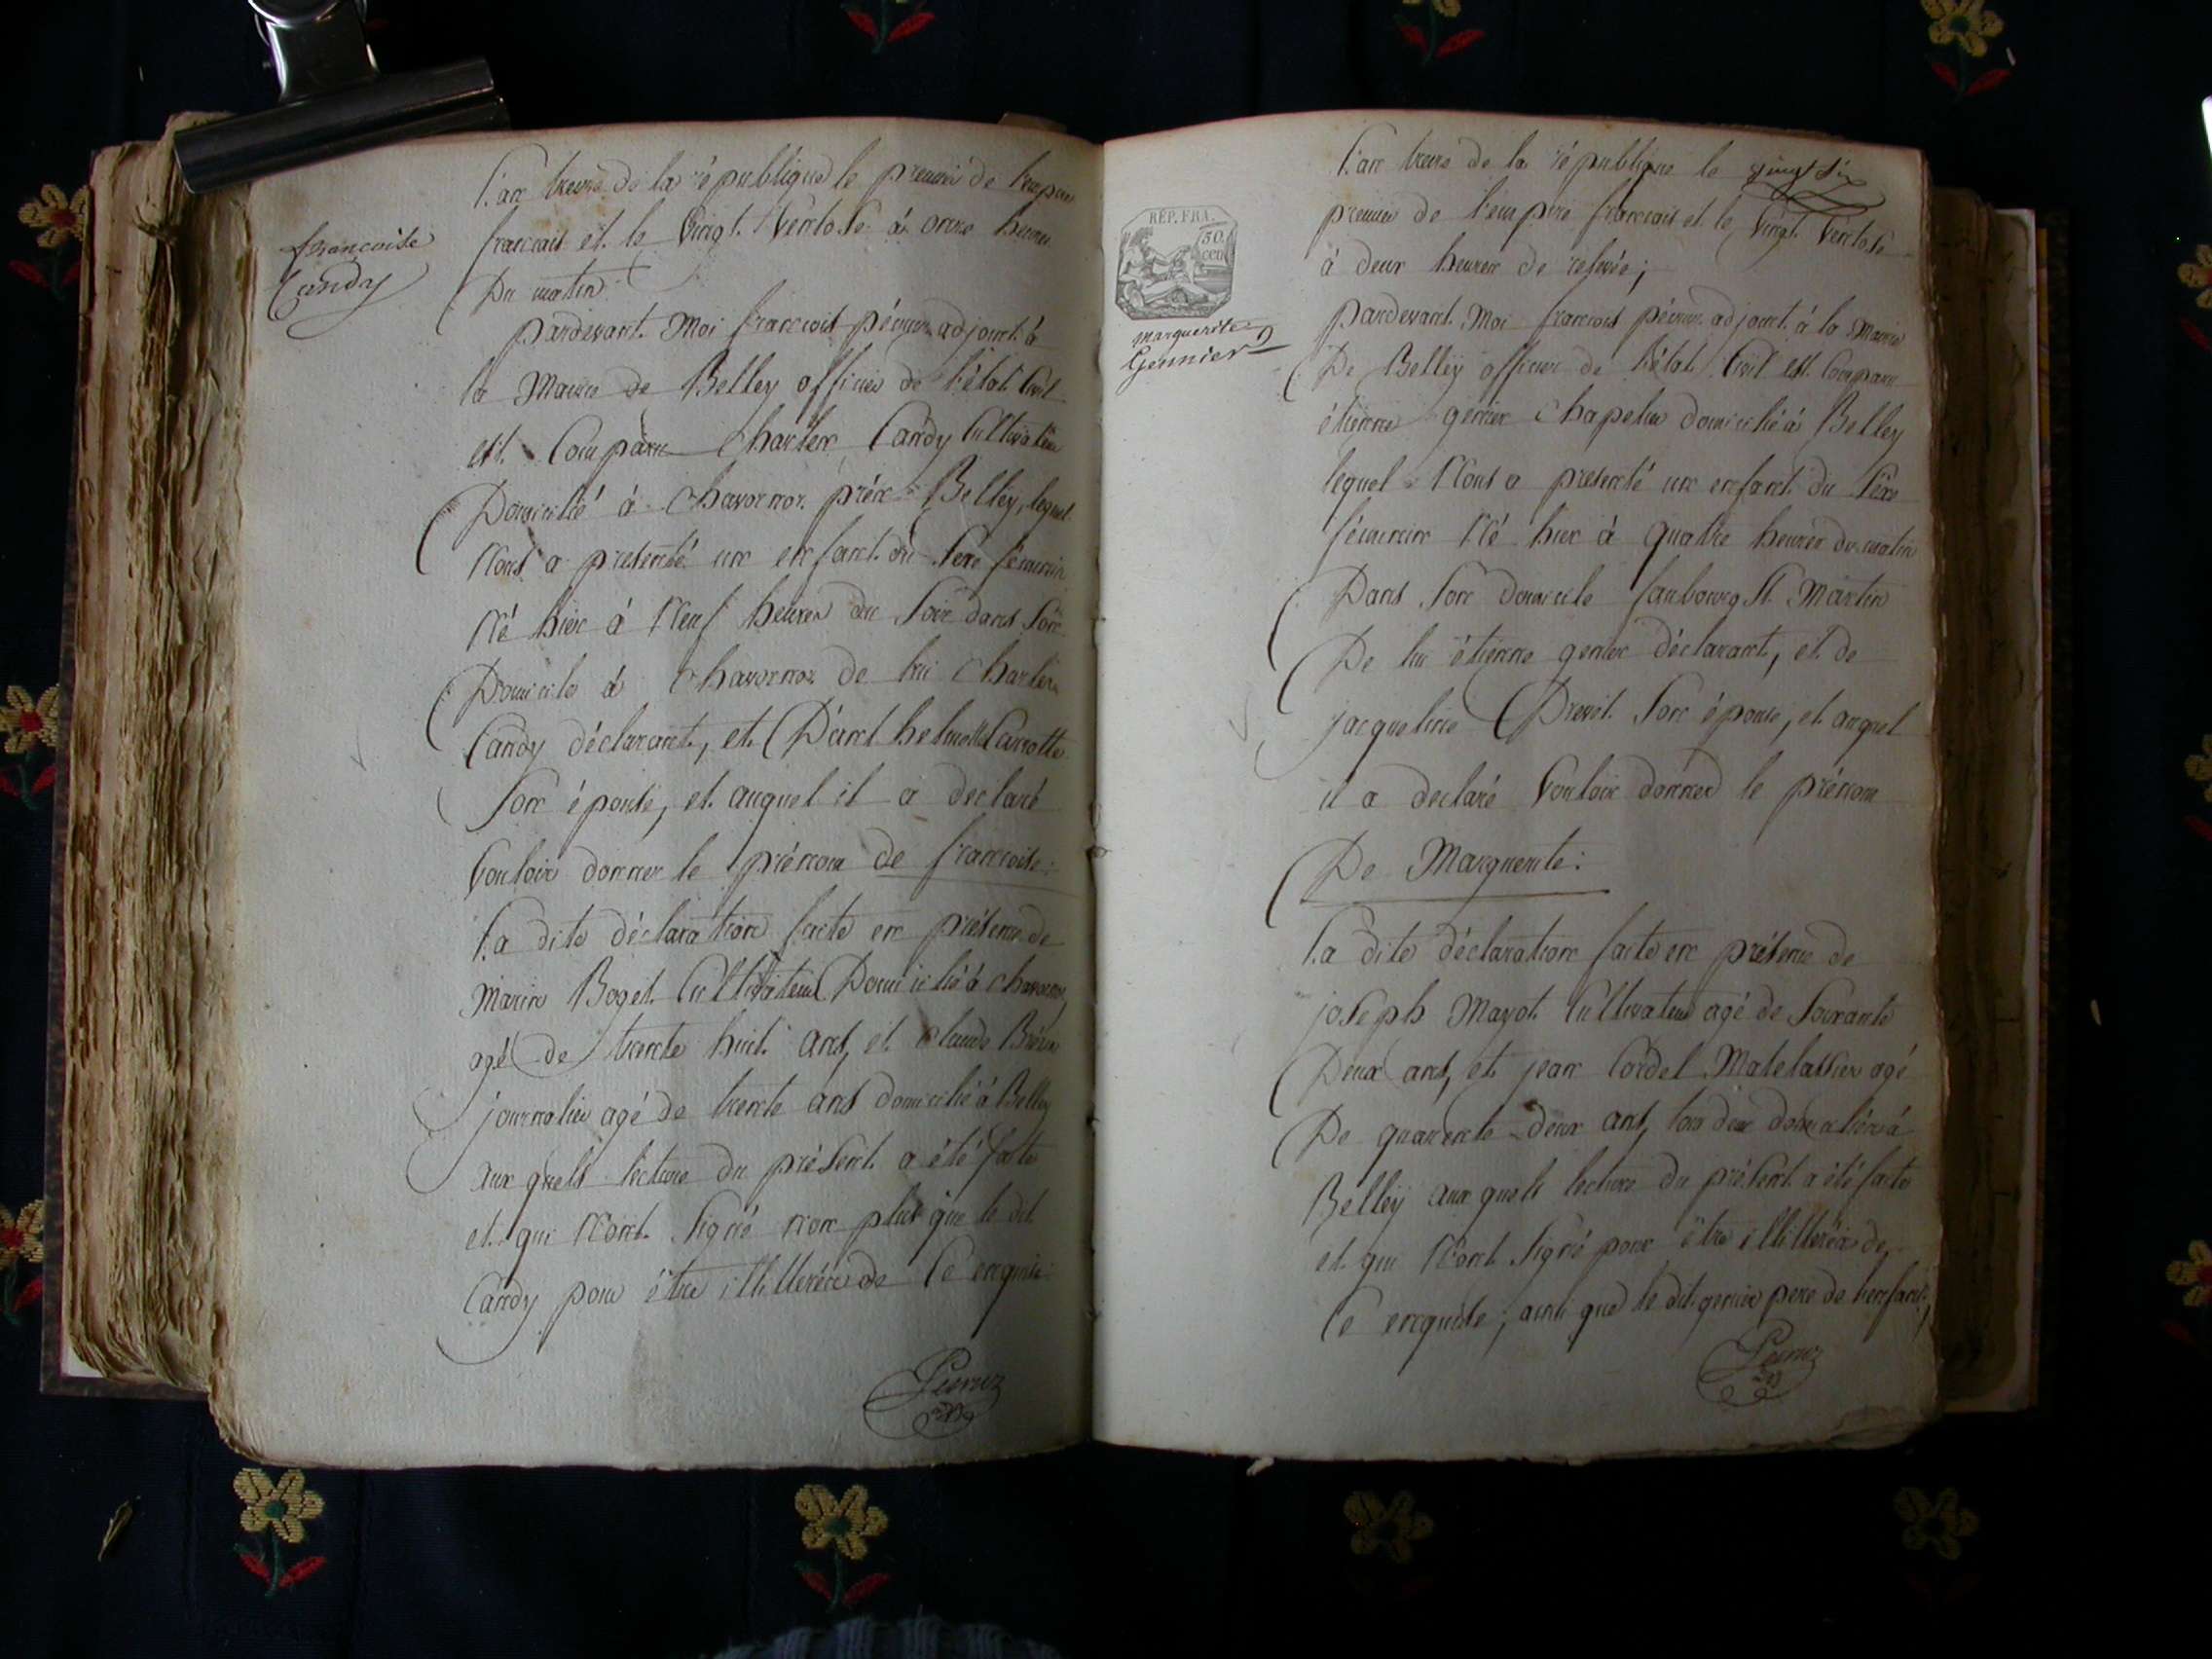 françoise
Candy
L'an treize de la république le premier de l'empire
francais et le vingt Ventose à onze heures
Du matin
pardevant Moi francois péruz adjoint à
la Mairie de Belley officier de l'état Civil
est Comparu Charles Candy Cultivateur
Domicilié à Chavornoz prés Belley, lequel
Nous a presenté un enfant du Sexe féminin
Né hier à Neuf heures du Soir dans Son
Domicile à Chavornoz de lui Charles
Candy déclarant, et D'anthelmette
Son épouse, et auquel il a declaré
Vouloir donner le prénom de francoise:
La dite déclaration faite en présence de
Marin Boget Cultivateur Domicilié à Chavornoz
agé de trente huit ans, et Claude
journalier agé de trente ans domicilié à Belley
aux quels lecture du présent a été faite
et qui N'ont Signé non plus que le dit
Candy pour être illiterés de Ce enquis:
Peruz
RÉP. FRA.
50
cen
marguerite
Gennier
L'an treize de la république le
premier de l'empire francais et le Vingt Ventose
à deux heures de relevée;
pardevant Moi francois péruz adjoint à la Mairie
De Belleÿ officier de l'état Civil est Comparu
étienne genier Chapelier domicilié à Belley
lequel Nous a presenté un enfant du Sexe
féminin Né hier à quatre heures du matin
Dans Son domicile faubourg St. Martin
De lui étienne genier déclarant, et de
jacqueline Prevôt Son épouse, et auquel
il a declaré Vouloir donner le prénom
De Marguerite:
La dite déclaration faite en présence de
joseph Mayot Cultivateur agé de Soixante
Deux ans, et jean Cordel Matelassier agé
De quarente deux ans, tous deux domiciliés à
Belleÿ aux quels lecture du présent a été faite
et qui N'ont Signé pour être illitterés de
Ce enquis; ainsi que le dit genier pere de l'enfant;
Peruz